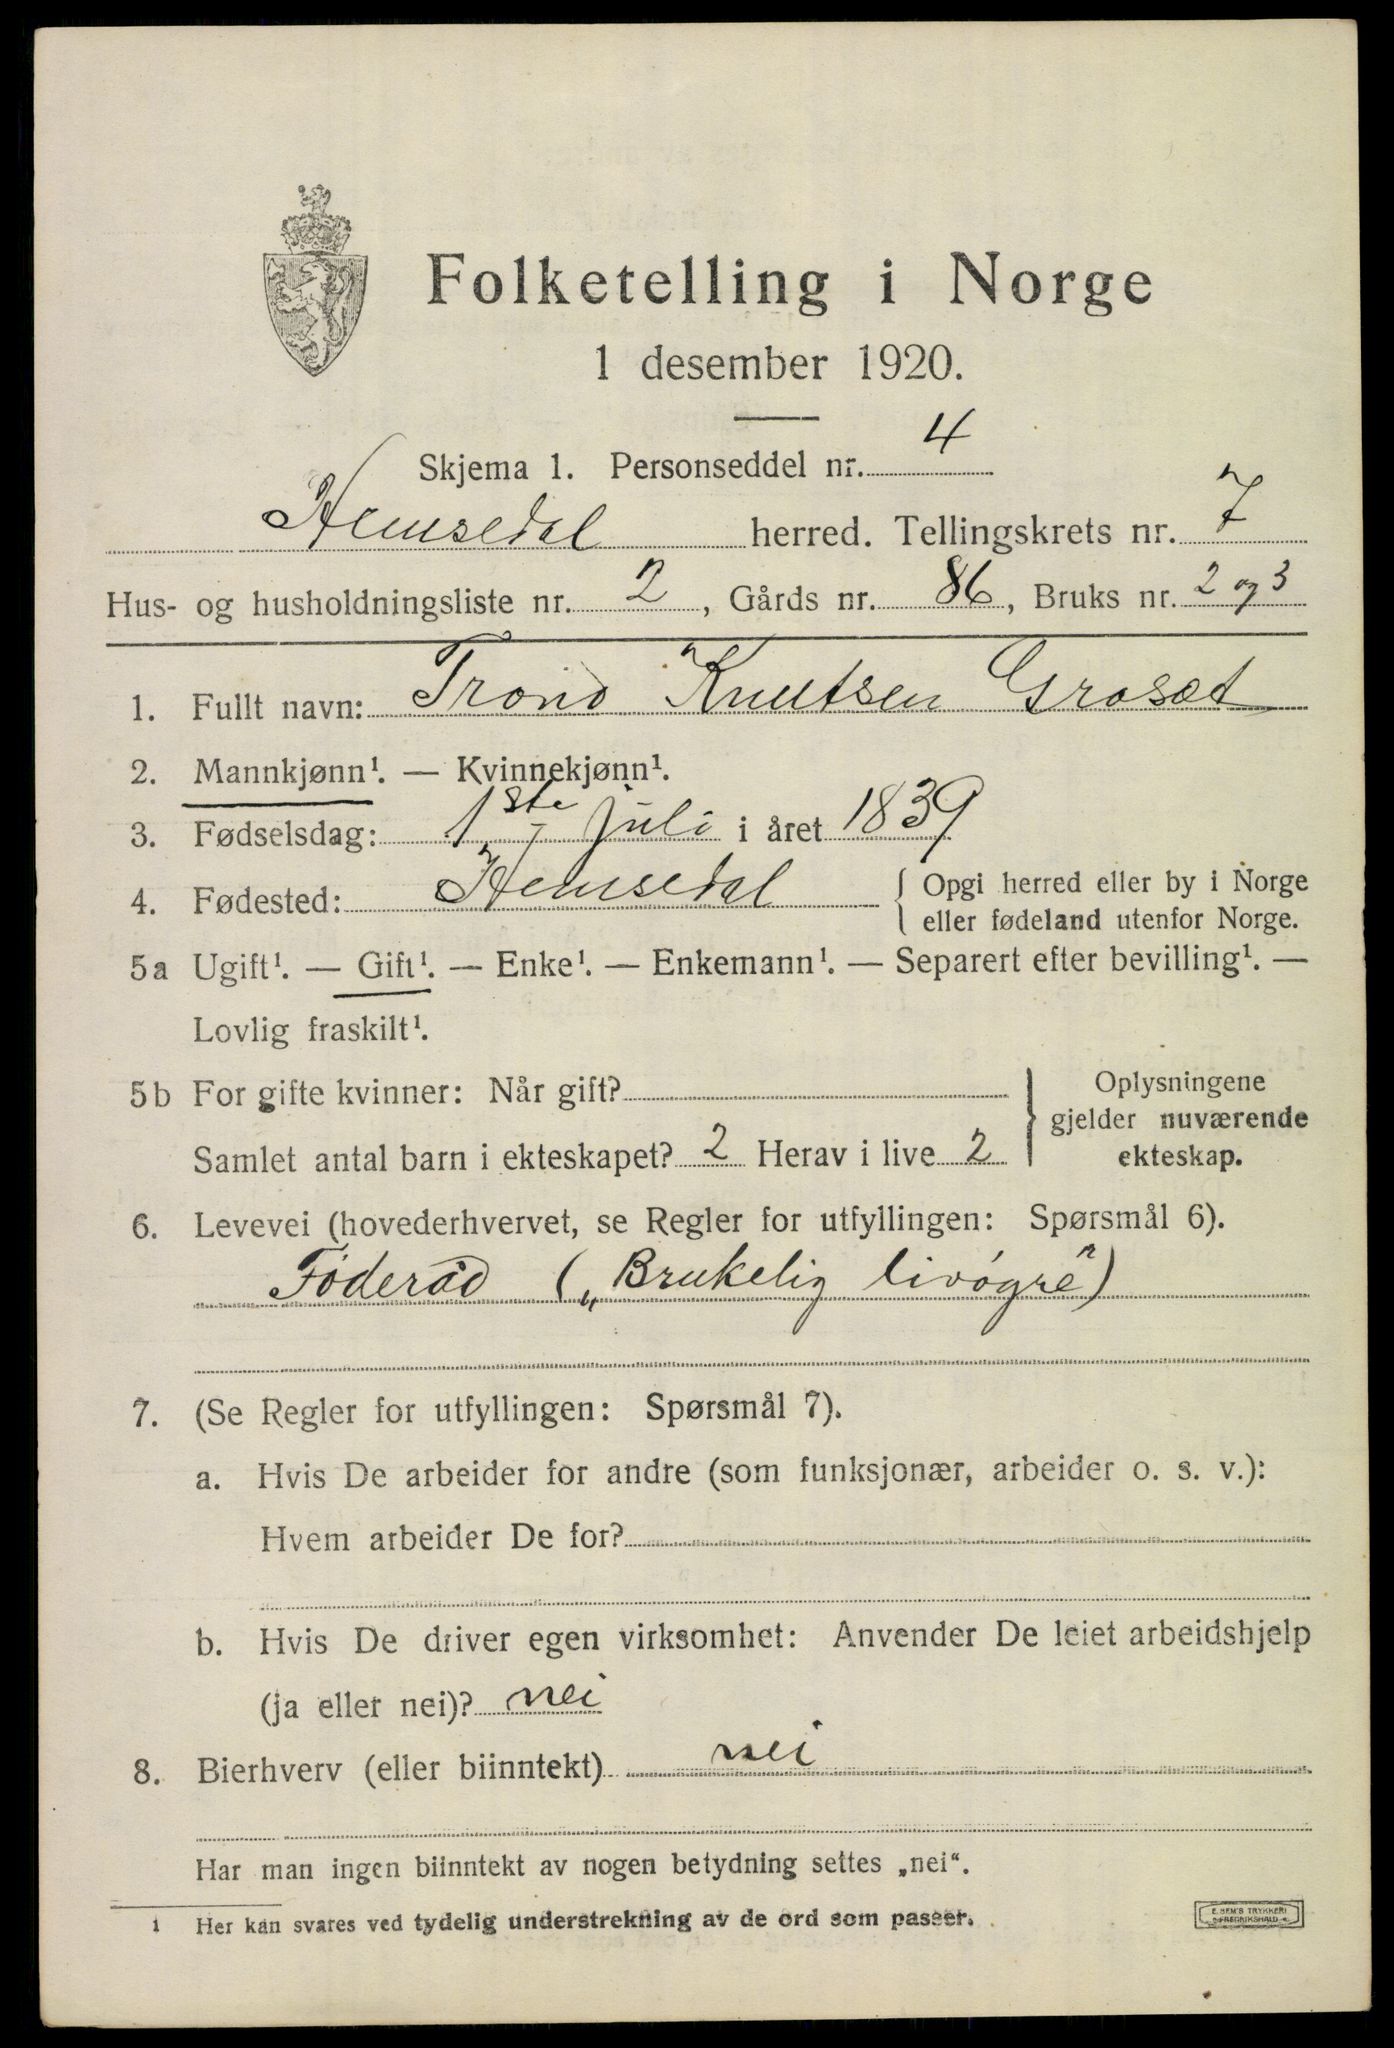 Folketelling i Norge
1 desember 1920.
Skjema 1. Personseddel nr. 4
Hemsedal herred. Tellingskrets nr. 7
Hus- og husholdningsliste nr. 2, Gårds nr. 86, Bruks nr. 2 og 3
1. Fullt navn: Trond Knutsen Grosæt
2. Mannkjønn¹. — Kvinnekjønn¹.
3. Fødselsdag: 1ste juli i året 1839
4. Fødested: Hemsedal { Opgi herred eller by i Norge
eller fødeland utenfor Norge.
5a Ugift¹. — Gift¹. — Enke¹. — Enkemann¹. — Separert efter bevilling¹. —
Lovlig fraskilt¹.
5b For gifte kvinner: Når gift?
Samlet antal barn i ekteskapet? 2 Herav i live 2
} Oplysningene
gjelder nuværende
ekteskap.
6. Levevei (hovederhvervet, se Regler for utfyllingen: Spørsmål 6).
Föderåd („Brukelig livögre")
7. (Se Regler for utfyllingen: Spørsmål 7).
a. Hvis De arbeider for andre (som funksjonær, arbeider o. s. v.):
Hvem arbeider De for?
b. Hvis De driver egen virksomhet: Anvender De leiet arbeidshjelp
(ja eller nei)? nei
8. Bierhverv (eller biinntekt) nei
Har man ingen biinntekt av nogen betydning settes „nei“.
1 Her kan svares ved tydelig understrekning av de ord som passer.
E. SEM'S TRYKKERI
FREDRIKSHALD